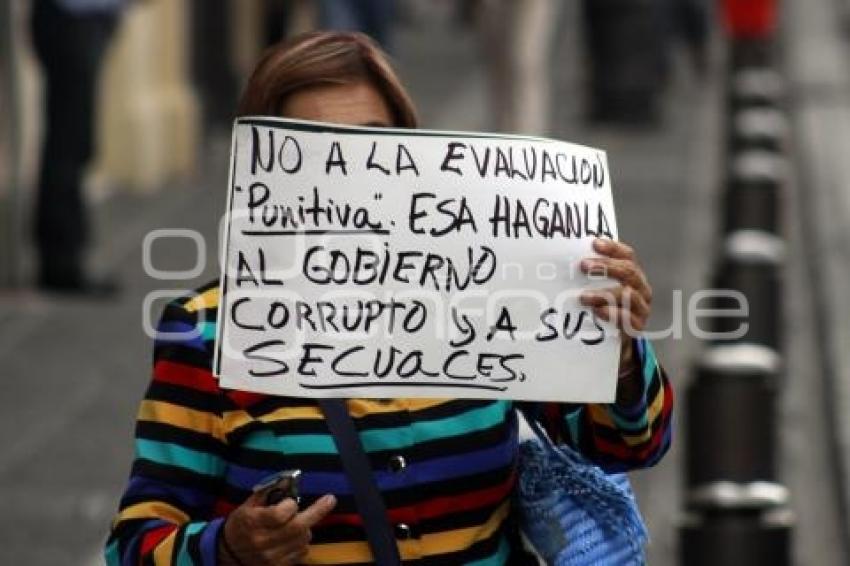 NO A LA EVALUACIÓN
"Punitiva". ESA HAGANLA
AL GOBIERNO
CORRUPTO y A SUS
SECUACES.
agencia
enfoque